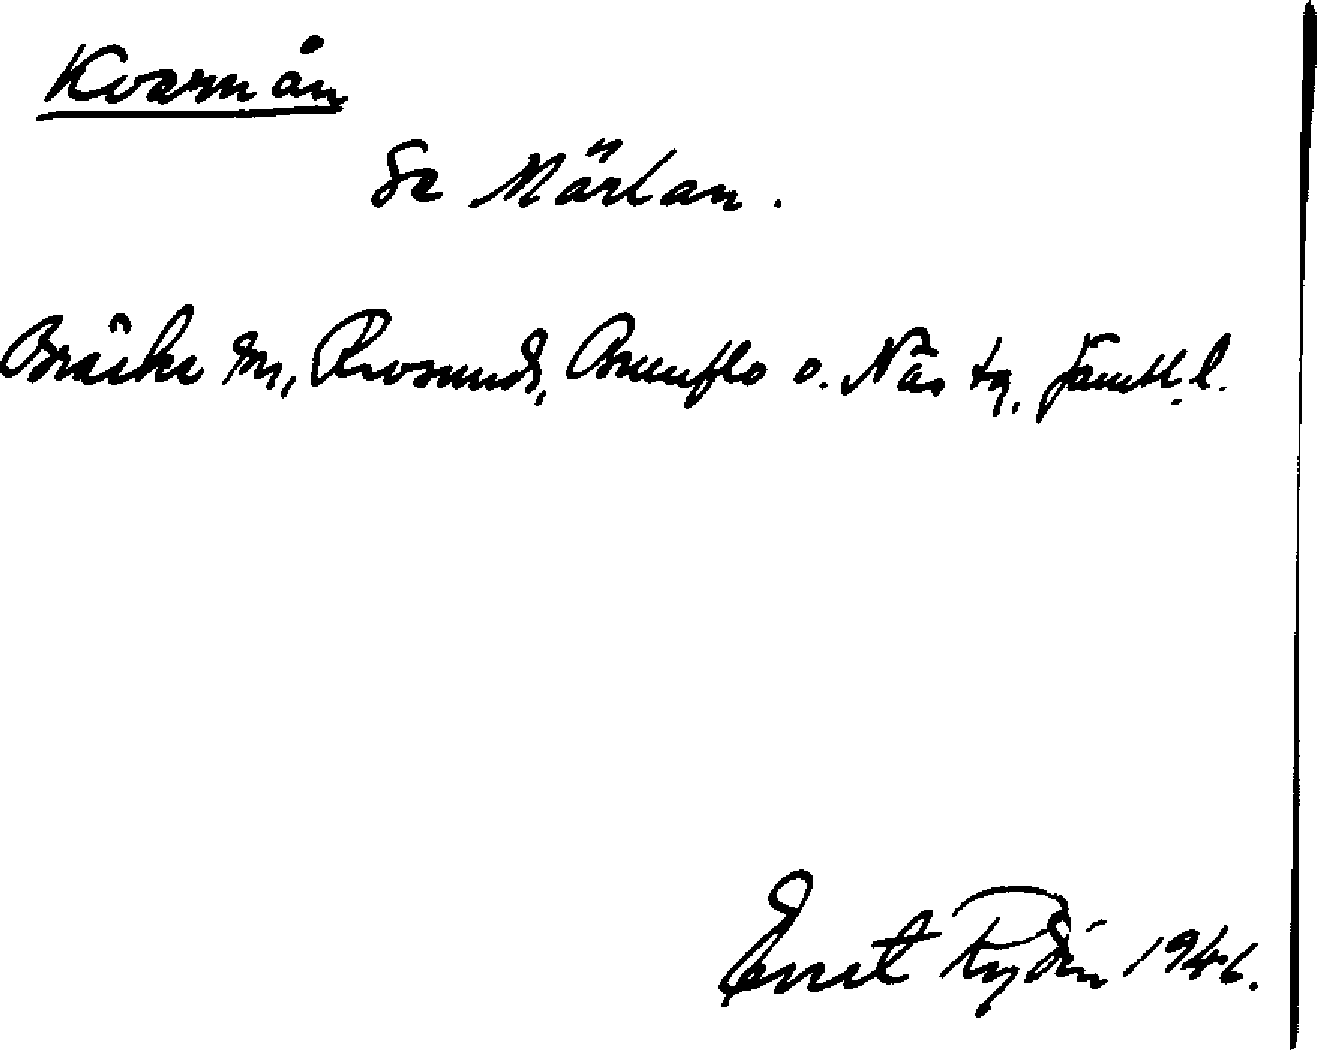 Kvarnån
Se Märlan.
Bräcke sn, Revsunds, Brunflo o. Näs tg, Jämtl. l.
Ernst Rydin 1946.